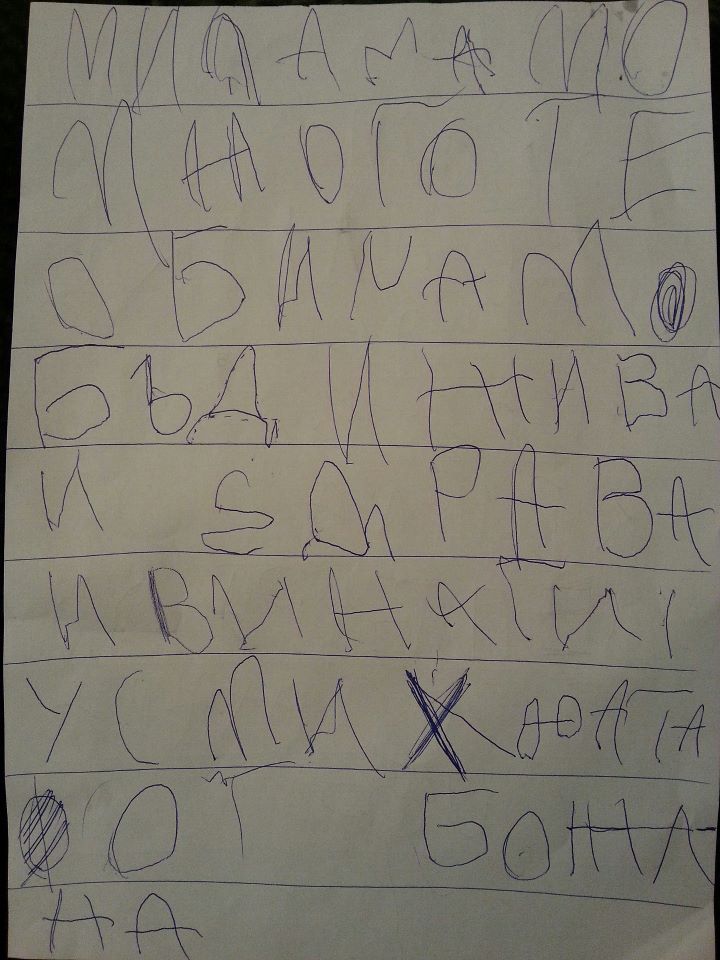 МИЛА МАМО
МНОГО ТЕ
ОБИЧАМ
БЪДИ ЖИВА
И ЗДРАВА
И ВИНАГИ
УСМИХНАТА
ОТ БОЖА
НА